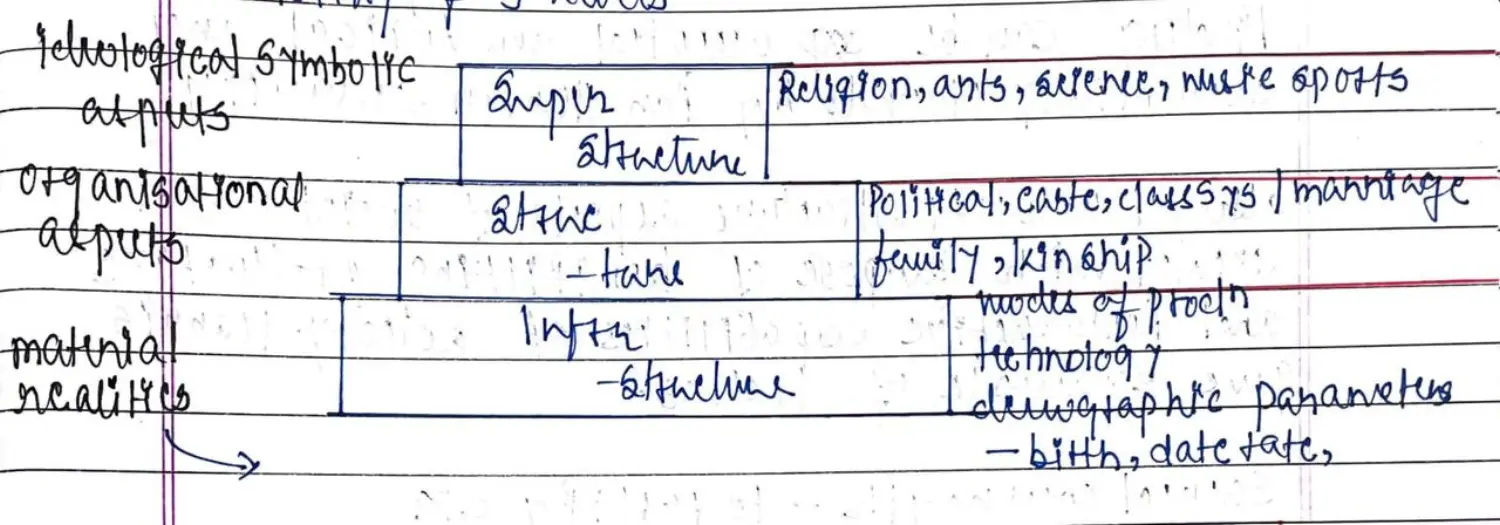 ideological symbolic
aspects
Super
structure
Religion, arts, science, music sports
organisational
aspects
Struc
-ture
Political, caste, class sys / marriage
family, kinship
material
realities
Infra
-structure
modes of prodn
technology
demographic parameters
- birth, date rate,